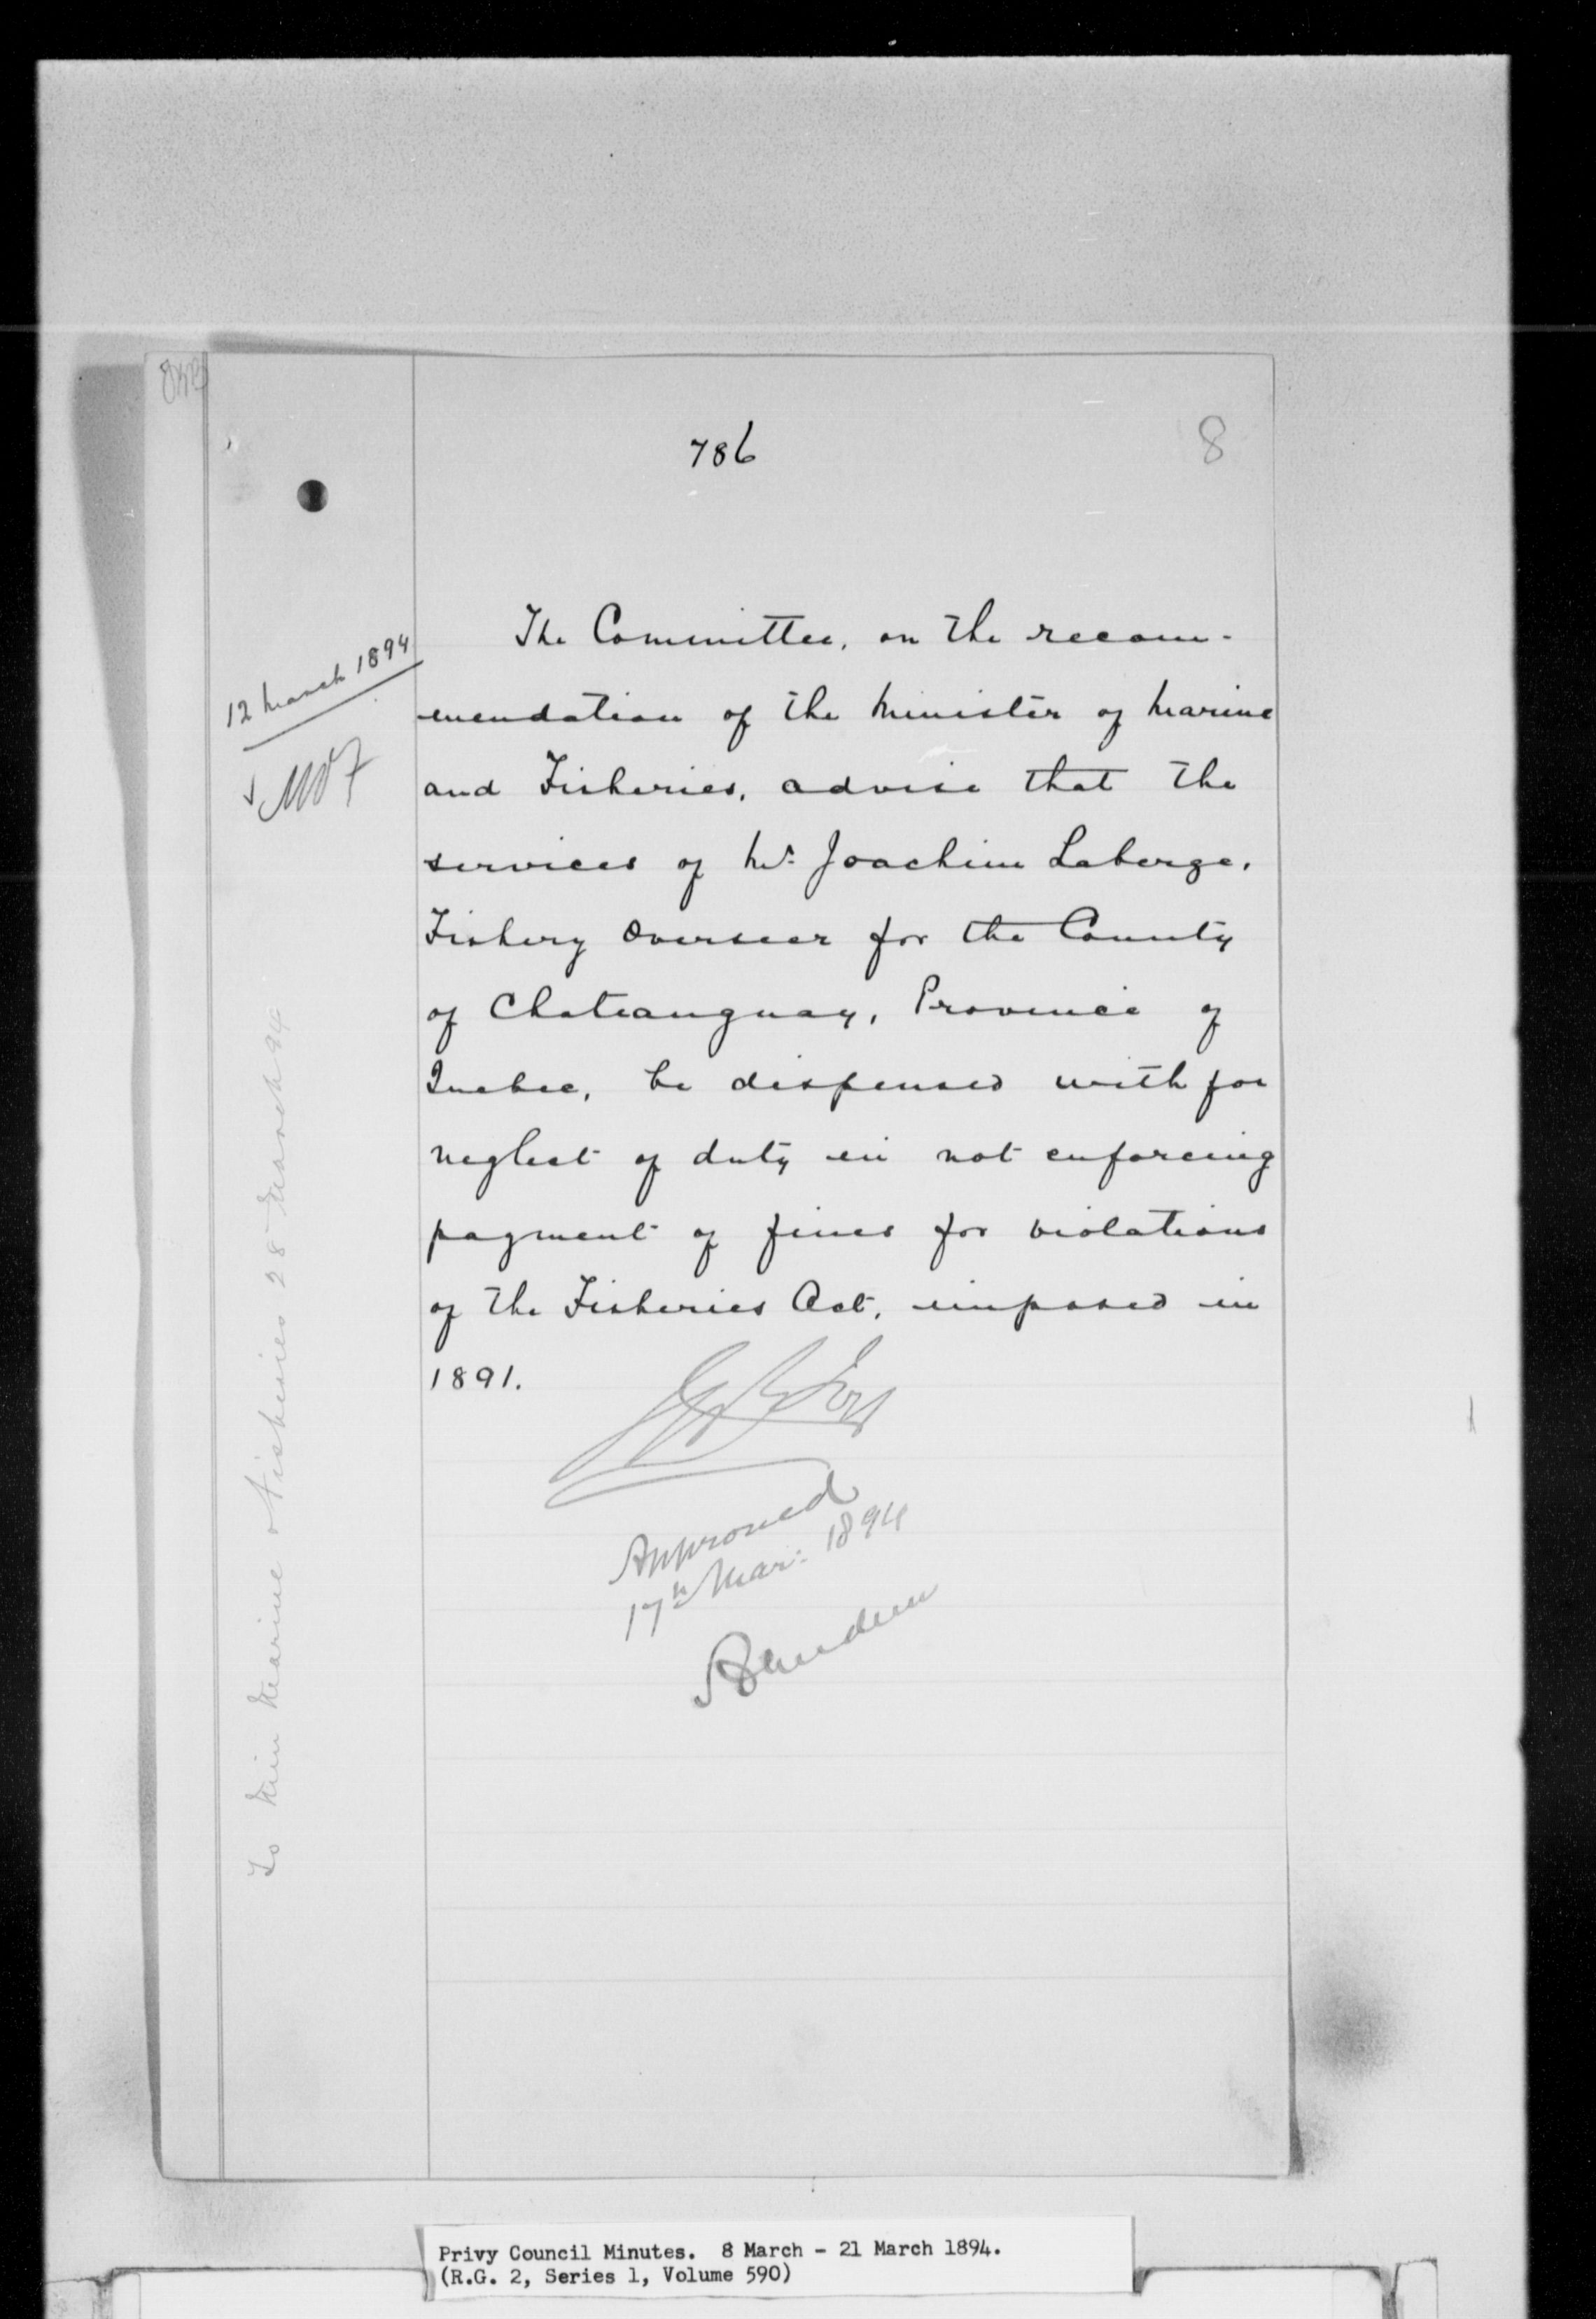 786
8
12 March 1894
The Committee, on the recom-
mendation of the Minister of Marine
and Fisheries, advise that the
services of Mr. Joachim Laberge,
Fishery Overseer for the County
of Chateauguay, Province of
Quebec, be dispensed with for
neglect of duty in not enforcing
payment of fines for violations
of the Fisheries Act, imposed in
1891.
Approved
17th Mar: 1894
Aberdeen
To Min Marine & Fisheries 28 March 94
Privy Council Minutes. 8 March - 21 March 1894.
(R.G. 2, Series 1, Volume 590)